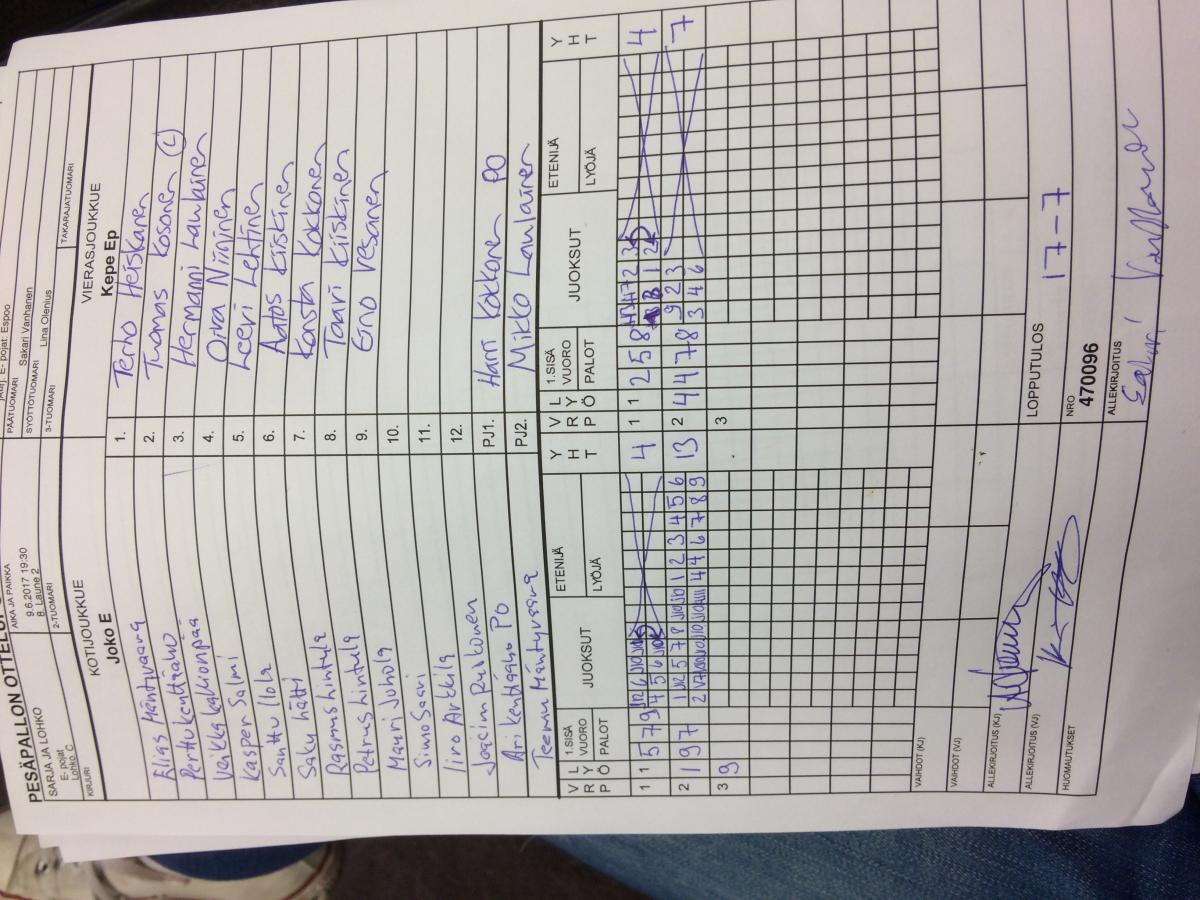 PESÄPALLON OTTELUP
SARJA JA LOHKO
E- pojat
Lohko C
AIKA JA PAIKKA
9.6.2017 19:30
8. Laune 2
PÄÄTUOMARI
E- pojat: Espoo
SYÖTTÖTUOMARI Sakari Vanhanen
KIRJURI
2-TUOMARI
3-TUOMARI Lina Olenius
TAKARAJATUOMARI
KOTIJOUKKUE
Joko E
VIERASJOUKKUE
Kepe Ep
Elias Mäntyvaara
1. Terho Heiskanen
Perttu Kenttäaho
2. Tuomas Kosonen (L)
Veikka Kallionpää
3. Hermanni Laulainen
Kasper Salmi
4. Oiva Niininen
Santtu Ilola
5. Leevi Lehtinen
Saku Lätti
6. Aatos Kiiskinen
Rasmus Hintula
7. Konsta Kokkonen
Petrus Hintula
8. Taavi Kiiskinen
Mauri Juhola
9. Eino Vesanen
Simo Saari
10.
Iiro Arkkila
11.
12.
Joacim Ruskonen
Ari Kenttäaho PO
PJ1. Harri Kokkonen PO
Teemu Mäntyvaara
PJ2. Mikko Laulainen
V R P L Y Ö
1.SISÄ VUORO
PALOT
JUOKSUT
ETENIJÄ
LYÖJÄ
Y H T
V R P L Y Ö
1.SISÄ VUORO
PALOT
JUOKSUT
ETENIJÄ
LYÖJÄ
Y H T
1 1 5 7 9
4
1 1 2 5 8
4
2 1 9 7
1 2 3 4 5 6
4 4 6 7 8 9
13
2 4 4 7 8
9 2 3
3 4 6
7
3 9
3
VAIHDOT (KJ)
VAIHDOT (VJ)
ALLEKIRJOITUS (KJ)
ALLEKIRJOITUS (VJ)
LOPPUTULOS 17-7
HUOMAUTUKSET
NRO
470096
ALLEKIRJOITUS